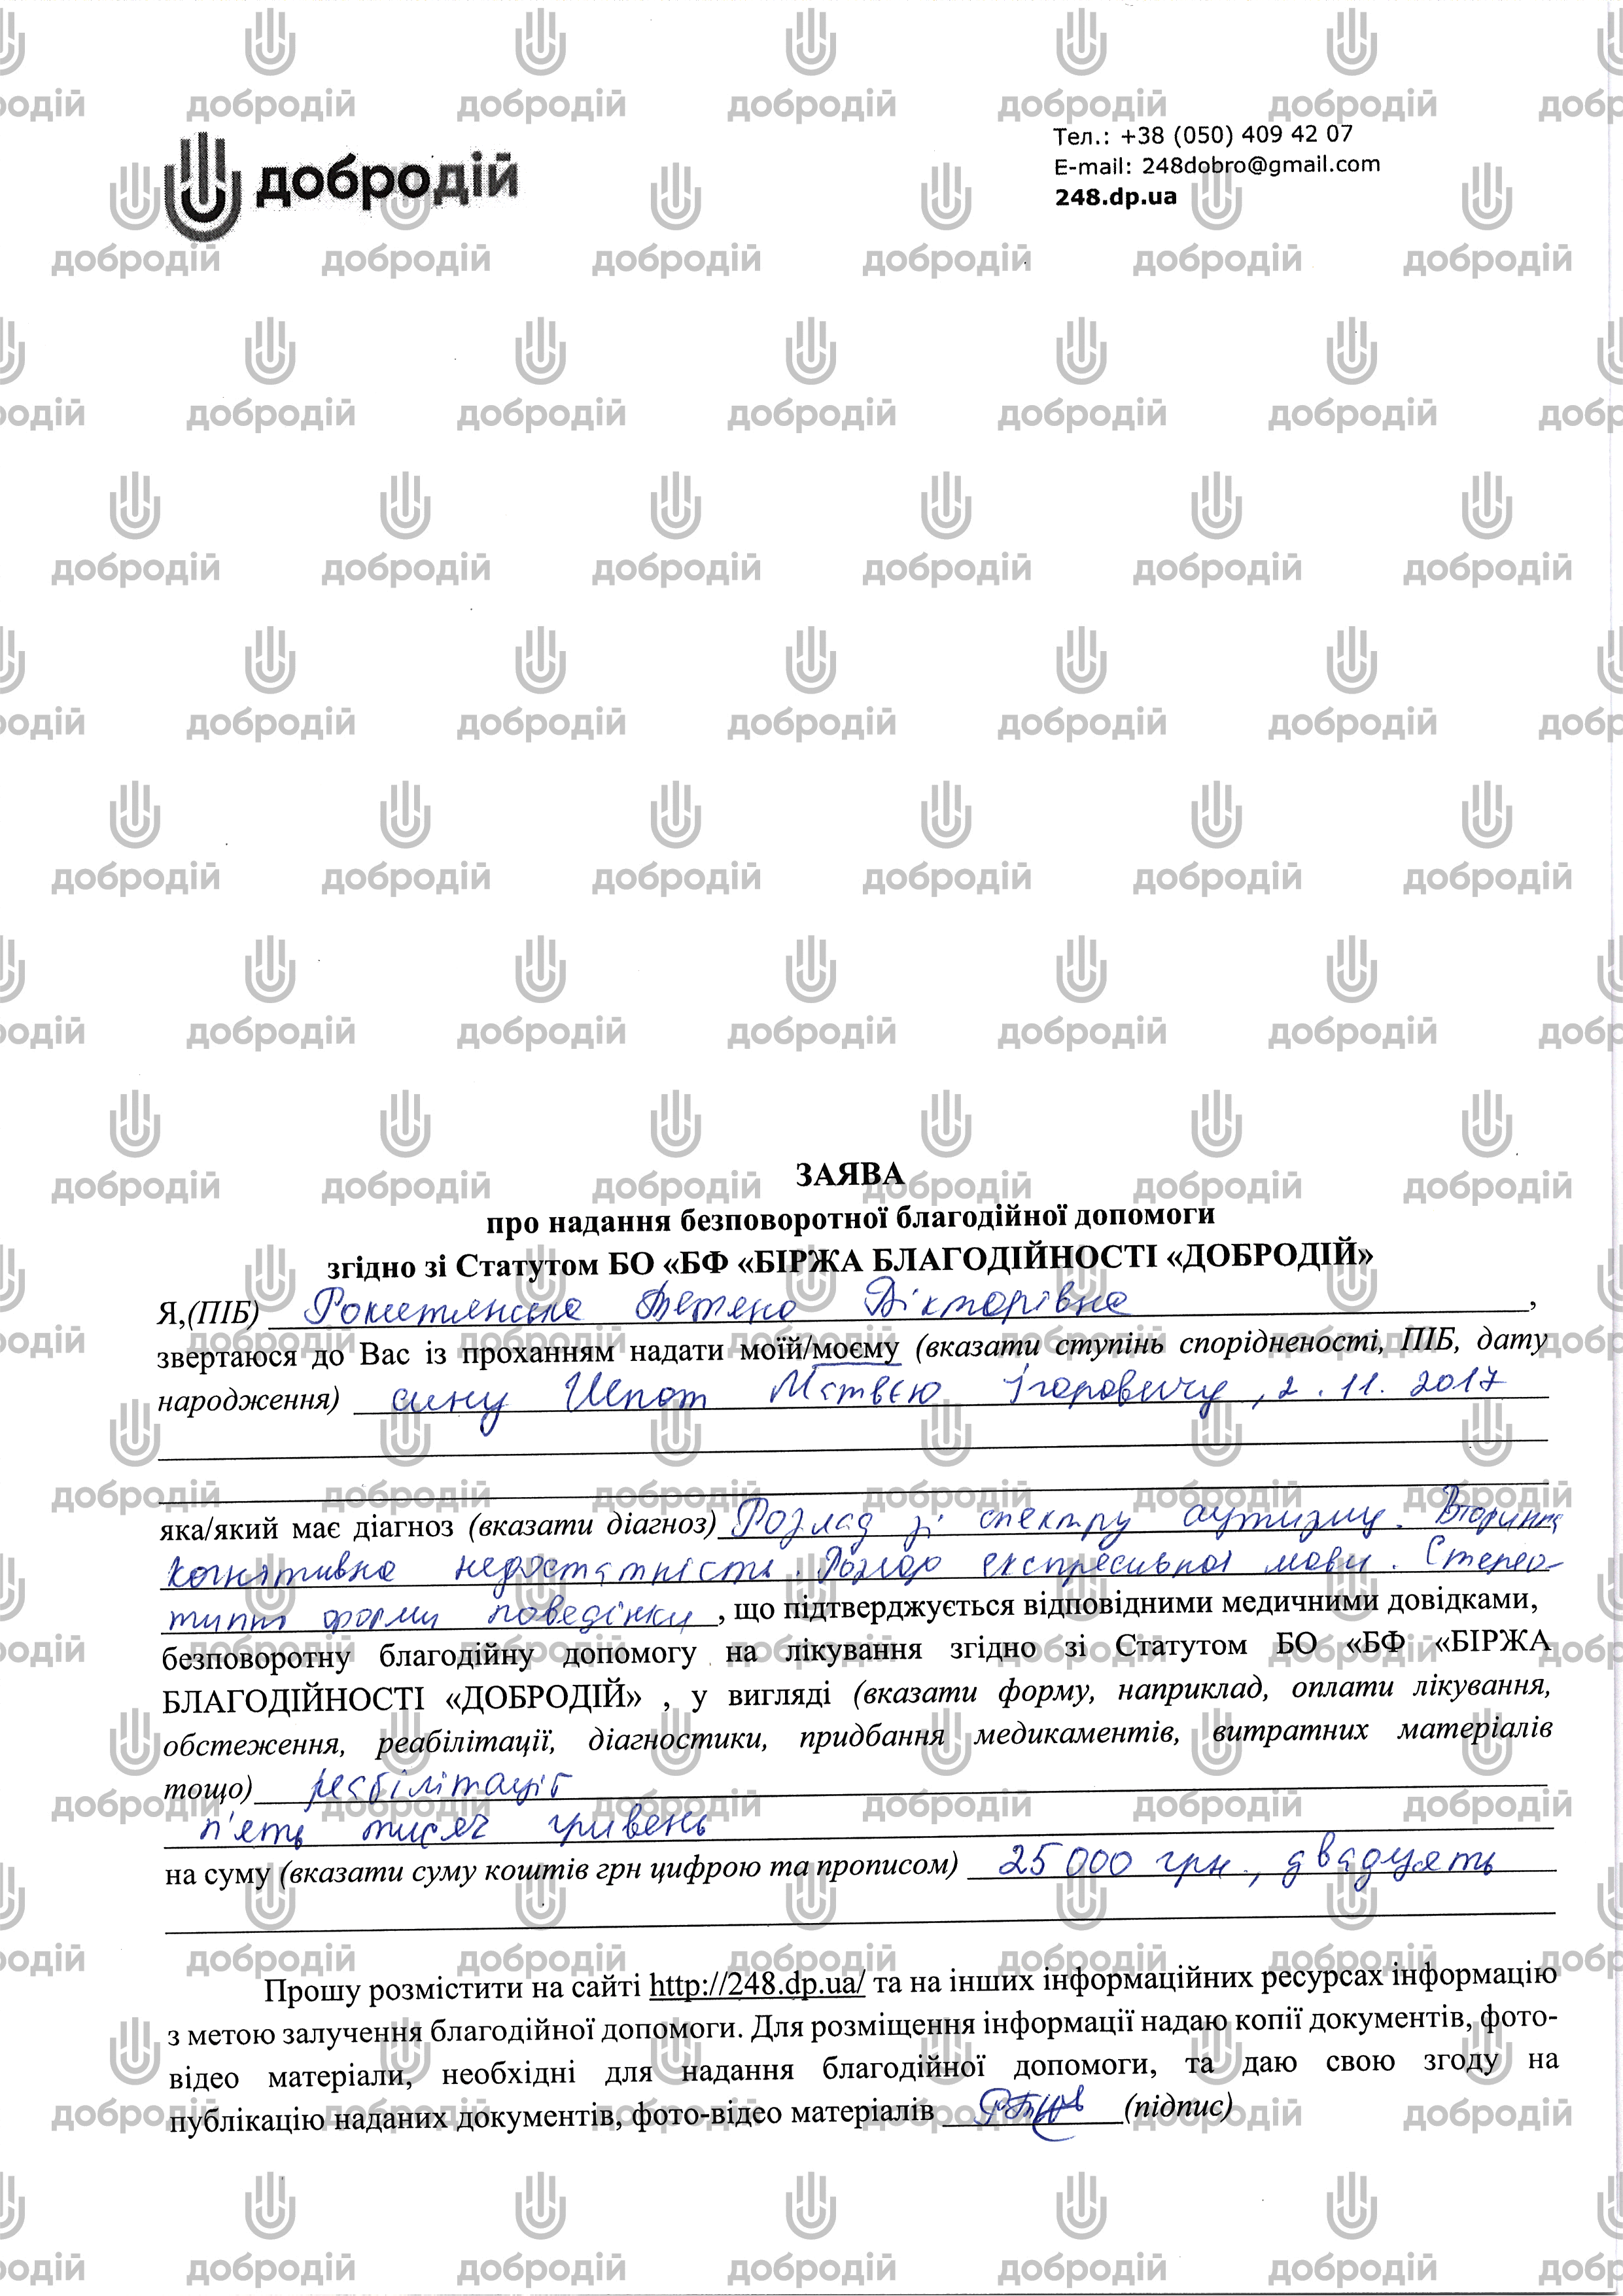 добродій
Тел.: +38 (050) 409 42 07
E-mail: 248dobro@gmail.com
248.dp.ua
ЗАЯВА
про надання безповоротної благодійної допомоги
згідно зі Статутом БО «БФ «БІРЖА БЛАГОДІЙНОСТІ «ДОБРОДІЙ»
Я,(ПІБ) Тетяна Вікторівна,
звертаюся до Вас із проханням надати моїй/моєму (вказати ступінь спорідненості, ПІБ, дату
народження) сину Шпот Матвєю Ігоровичу, 2.11.2017
яка/який має діагноз (вказати діагноз) Розлад зі спектру аутизму. Вторинна
когнітивна недостатність. Розлад експресивної мови. Стерео-
типні форми поведінки, що підтверджується відповідними медичними довідками,
безповоротну благодійну допомогу на лікування згідно зі Статутом БО «БФ «БІРЖА
БЛАГОДІЙНОСТІ «ДОБРОДІЙ» , у вигляді (вказати форму, наприклад, оплати лікування,
обстеження, реабілітації, діагностики, придбання медикаментів, витратних матеріалів
тощо) реабілітації
п'ять тисяч гривень
на суму (вказати суму коштів грн цифрою та прописом) 25 000 грн., двадцять
Прошу розмістити на сайті http://248.dp.ua/ та на інших інформаційних ресурсах інформацію
з метою залучення благодійної допомоги. Для розміщення інформації надаю копії документів, фото-
відео матеріали, необхідні для надання благодійної допомоги, та даю свою згоду на
публікацію наданих документів, фото-відео матеріалів (підпис)